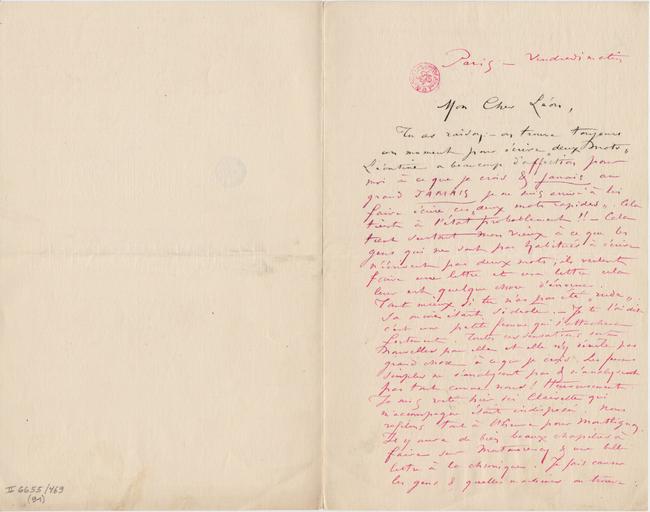 Paris – Vendredi matin
Mon Cher Léon,
Tu as raison – on trouve toujours
un moment pour écrire "deux mots"
Léontine a beaucoup d'affection pour
moi à ce que je crois & jamais au
grand JAMAIS je ne suis arrivé à lui
faire écrire ces deux mots rapides". Cela
tient à l'état probablement !! – Cela
tient surtout mon vieux à ce que les
gens qui ne sont pas habitués à écrire
n'écrivent pas deux mots, ils veulent
faire une lettre et une lettre cela
leur est quelque chose d'énorme.
Tant mieux si tu n'as pas été "rude".
Sa mère étant si drôle. – Je te l'ai dit
c'est une petite femme qui s'attachera
fortement. Toutes ces sensations sont
nouvelles pour elle et elle n'y démêle pas
grand chose à ce que je crois. Les femmes
simples ne s'analysent pas & n'analysent
pas tout comme nous ! Heureusement
Je suis resté hier ici Clairette qui
m'accompagne étant indisposée. Nous
filons tout à l'heure pour
Il y aura de bien beaux chapitres à
faire sur & une belle
lettre à la chronique. Je fais causer
les gens & quelles on trouve
II 6655/469
(91)